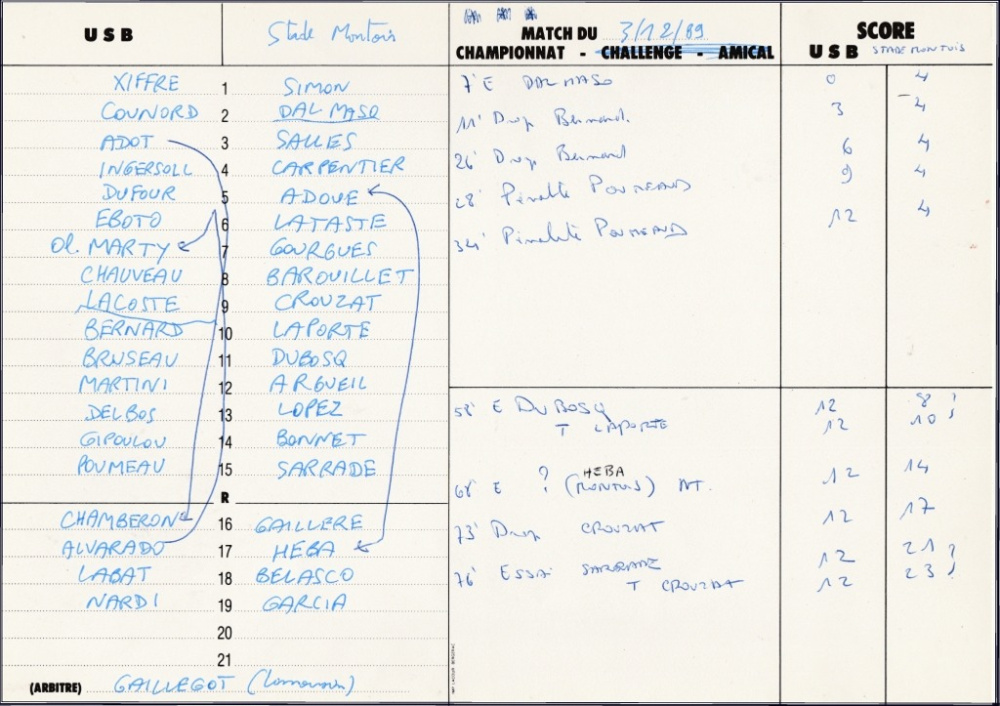 USB Stade Montois
MATCH DU 3/12/89
CHAMPIONNAT - CHALLENGE - AMICAL
SCORE
USB STADE MONTOIS
XIFFRE 1 SIMON
COUNORD 2 DAL MASO
ADOT 3 SALLES
INGERSOLL 4 CARPENTIER
DUFOUR 5 ADOUE
EBOTO 6 LATASTE
Ol. MARTY 7 GOURGUES
CHAUVEAU 8 BAROUILLET
LACOSTE 9 CROUZAT
BERNARD 10 LAPORTE
BRUSEAU 11 DUBOSQ
MARTINI 12 ARGUEIL
DELBOS 13 LOPEZ
GIPOULOU 14 BONNET
POUMEAU 15 SARRADE
R
CHAMBERON 16 GAILLERE
ALVARADO 17 HEBA
LABAT 18 BELASCO
NARDI 19 GARCIA
20
21
(ARBITRE) GAILLEGOT
7' E DAL MASO 0 4
11' Drop Bernard. 3 4
26' Drop Bernard 6 4
28' Pénalité POUMEAUD 9 4
34' Pénalité POUMEAUD 12 4
58' E DUBOSQ 12 8
T LAPORTE 12 10
68' E ? HEBA (MONTOIS) NT. 12 14
73' Drop CROUZAT 12 17
76' ESSAI SARRADE 12 21 ?
T CROUZAT 12 23